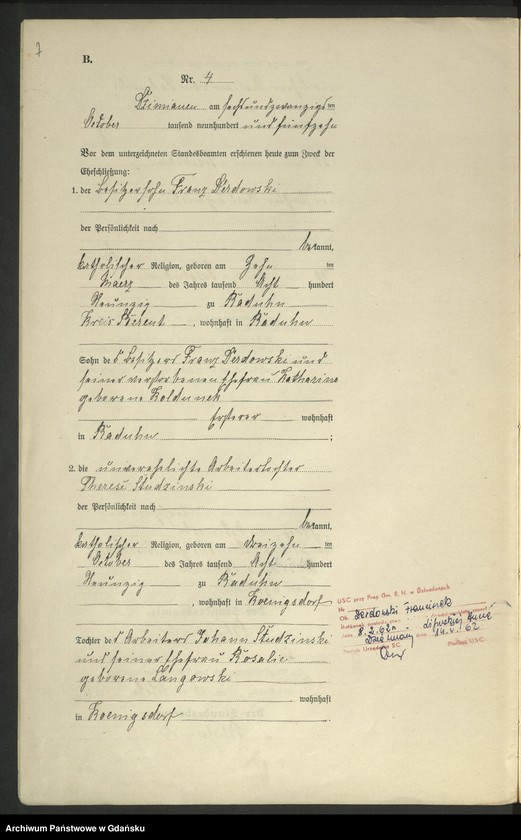 7
B.
Nr. 4
Dzimianen am sechsundzwanzigsten
October tausend neunhundert und fünfzehn
Vor dem unterzeichneten Standesbeamten erschienen heute zum Zweck der
Eheschließung:
1. der Besitzersohn Franz Derdowski
der Persönlichkeit nach
bekannt,
katholischer Religion, geboren am Zehnten
Maerz des Jahres tausend Acht hundert
Neunzig zu Raduhn
Kreis Berent, wohnhaft in Raduhn
Sohn des Besitzers Franz Derdowski und
seiner verstorbenen Ehefrau Katharina
geborene Koldunek
Ersterer wohnhaft
in Raduhn;
2. die unverehelichte Arbeitertochter
Therese Studzinski
der Persönlichkeit nach
bekannt,
katholischer Religion, geboren am dreizehnten
October des Jahres tausend Acht hundert
Neunzig zu Raduhn
, wohnhaft in Koenigsdorf
Tochter des Arbeiters Johann Studzinski
und seiner Ehefrau Rosalie
geborene Langowski
wohnhaft
in Koenigsdorf.
USC przy Prez. Gm. R. N. w Dziemianach
Nr
Ob. Derdowski Franciszek
8.2.62r.
Dziemiany 14.V.62
Urzędu SC
USC
Archiwum Państwowe w Gdańsku